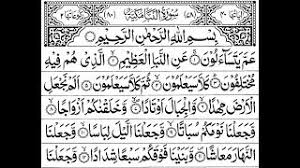 سُوْرَةُ النَّبَاِ مَكِّيَّةٌ
بِسْمِ اللّٰهِ الرَّحْمٰنِ الرَّحِيْمِ
عَمَّ يَتَسَآءَلُوْنَ ۝ عَنِ النَّبَاِ الْعَظِيْمِ ۝ الَّذِيْ هُمْ فِيْهِ
مُخْتَلِفُوْنَ ۝ كَلَّا سَيَعْلَمُوْنَ ۝ ثُمَّ كَلَّا سَيَعْلَمُوْنَ ۝ اَلَمْ نَجْعَلِ
الْاَرْضَ مِهٰدًا ۝ وَّالْجِبَالَ اَوْتَادًا ۝ وَّخَلَقْنٰكُمْ اَزْوَاجًا ۝
وَّجَعَلْنَا نَوْمَكُمْ سُبَاتًا ۝ وَّجَعَلْنَا الَّيْلَ لِبَاسًا ۝ وَّجَعَلْنَا
النَّهَارَ مَعَاشًا ۝ وَّبَنَيْنَا فَوْقَكُمْ سَبْعًا شِدَادًا ۝ وَّجَعَلْنَا